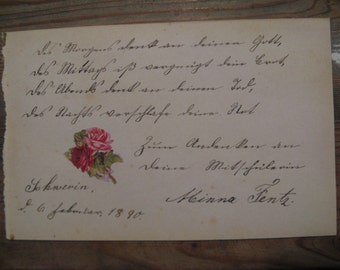 Des Morgens denk an deinen Gott,
Des Mittags iß vergnügt dein Brot,
Des Abends denk an deinen Tod,
Des Nachts verschlafe deine Not
Zum Andenken an
Deine Mitschülerin
Schwerin.
Minna Fentz.
d. 6 Februar, 1890